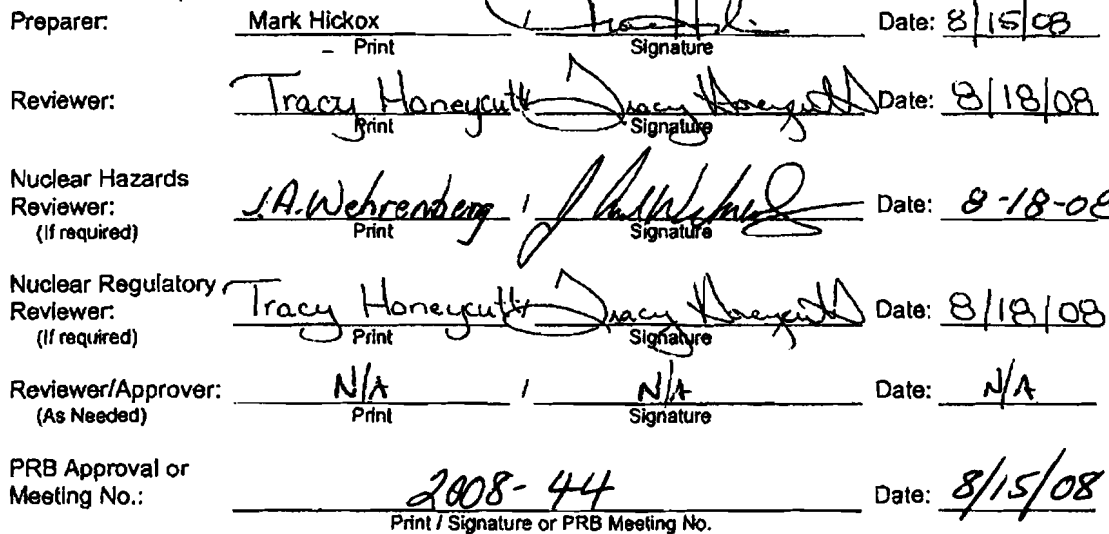 Preparer: Mark Hickox / Date: 8/15/08
Print Signature
Reviewer: Tracy Honeycutt Tracy Honeycutt Date: 8/18/08
Print Signature
Nuclear Hazards
Reviewer: J.A. Wehrenberg / Date: 8-18-08
(If required) Print Signature
Nuclear Regulatory
Reviewer: Tracy Honeycutt Tracy Honeycutt Date: 8/18/08
(If required) Print Signature
Reviewer/Approver: N/A / N/A Date: N/A
(As Needed) Print Signature
PRB Approval or
Meeting No.: 2008-44 Date: 8/15/08
Print / Signature or PRB Meeting No.